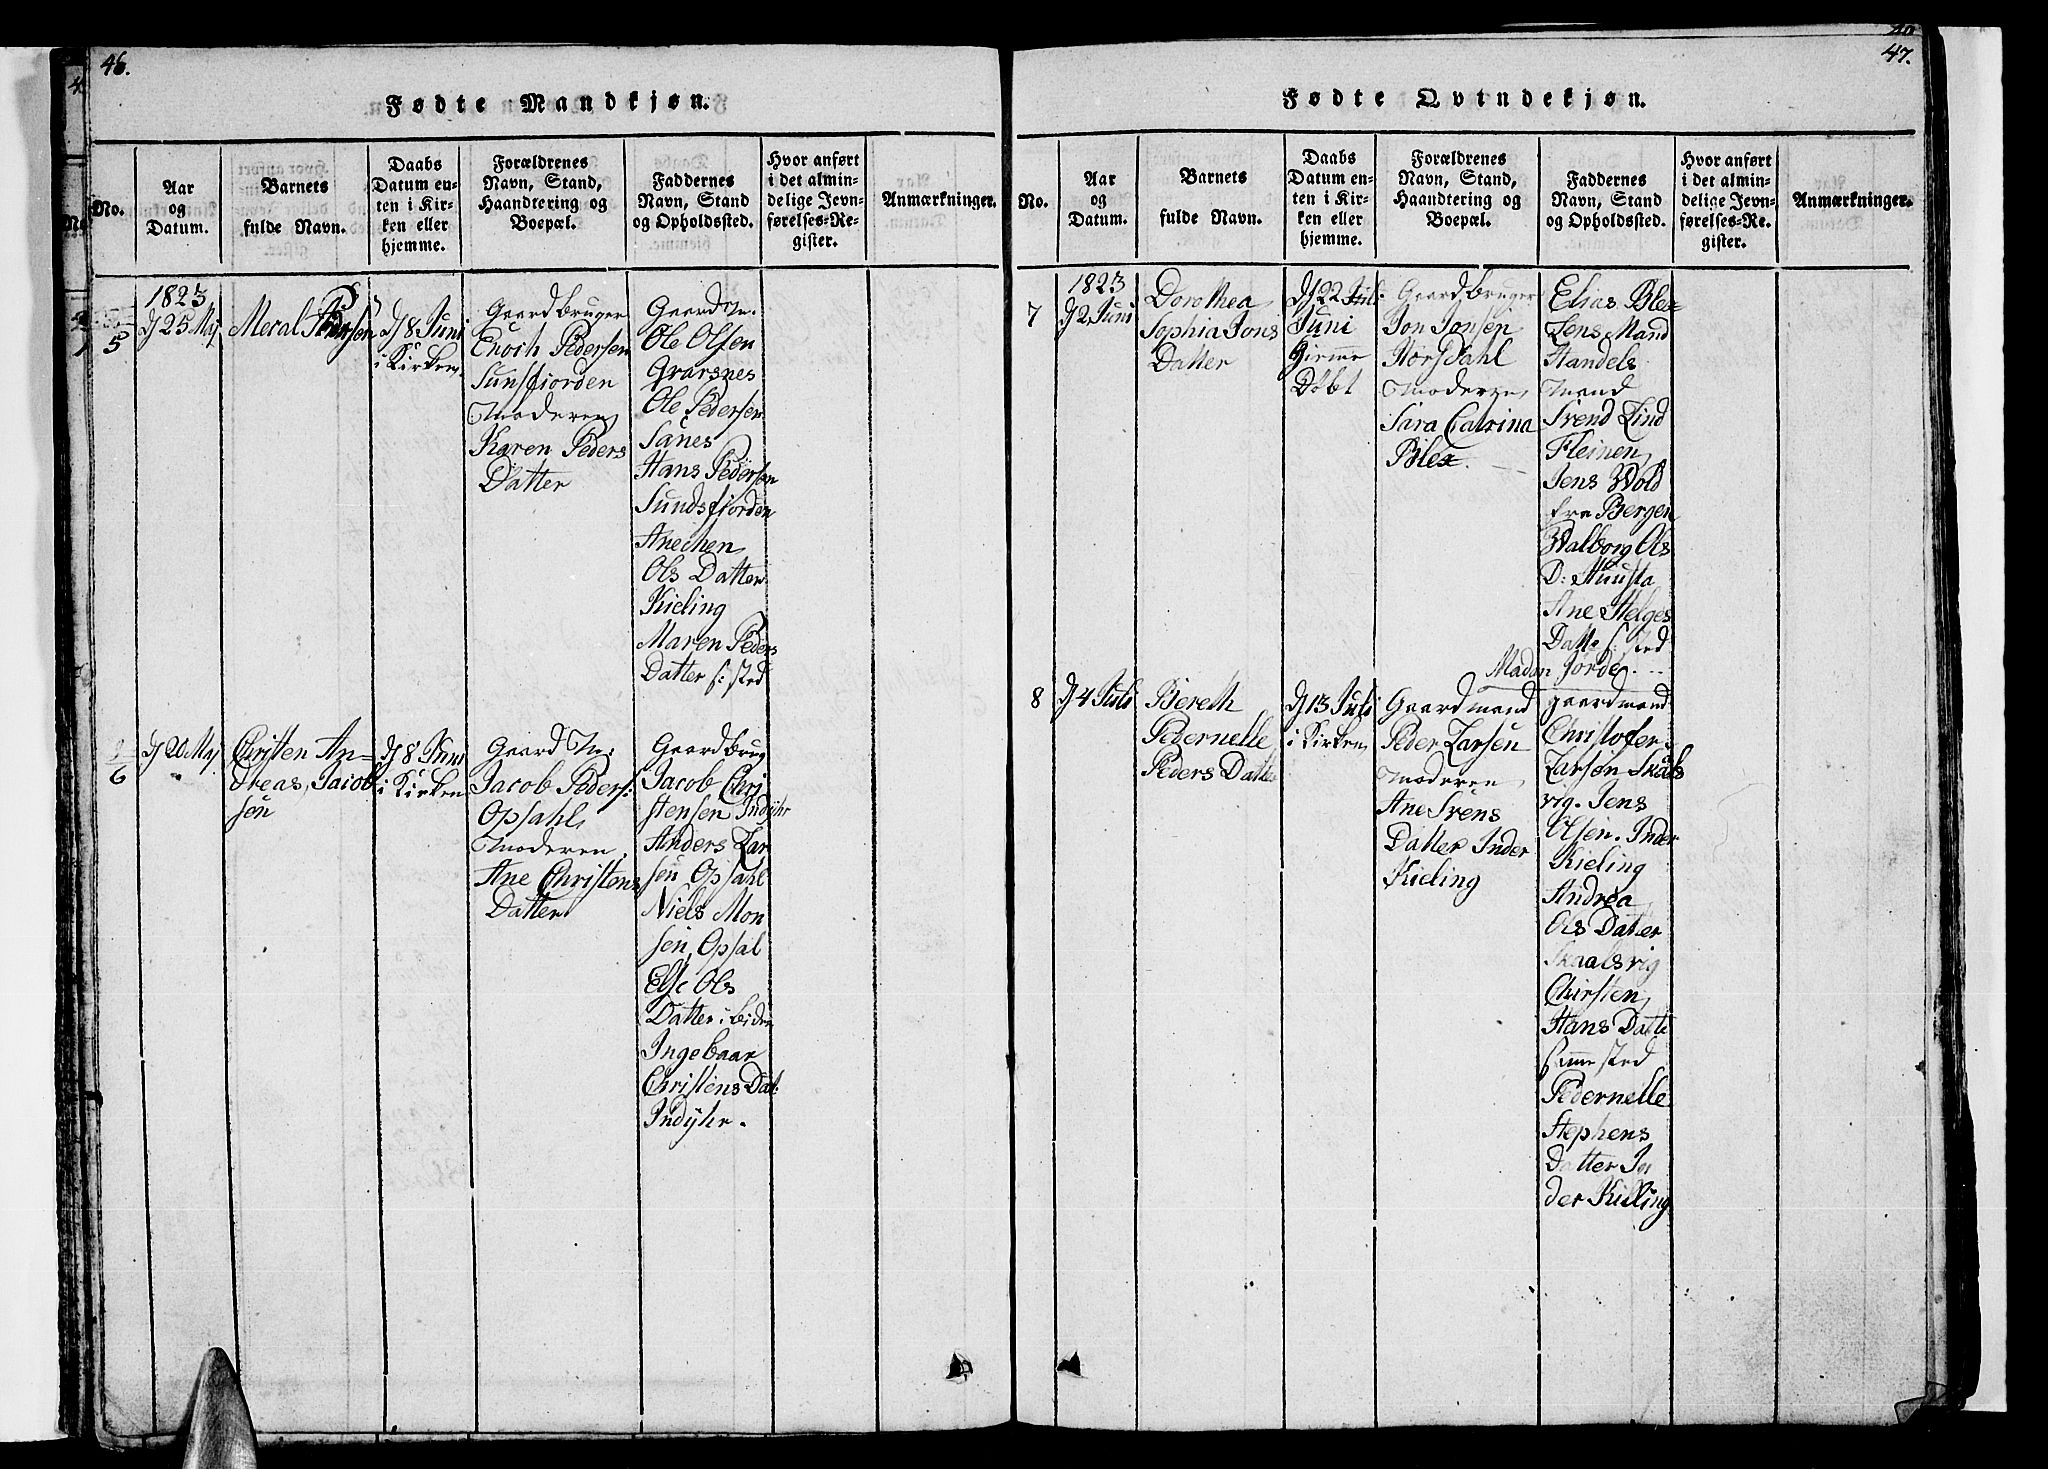 46.
Fødte Mandkjøn.
No.
Aar
og
Datum.
Barnets
fulde Navn.
Daabs
Datum en-
ten i Kir-
ken eller
hjemme.
Forældrenes
Navn, Stand,
Haandtering og
Boepæl.
Faddernes
Navn, Stand
og Opholdssted.
Hvor anført
i det almin-
delige Jevn-
førelses-Re-
gister.
Anmærkninger.
5
1823
d 25 Maj
Meral
d 8 Juni
i Kirken
Gaardbruger
Enoch Pedersen
Sunsfiorden
Moderen
Karen Peders
Datter
Gaard M.
Ole Olsen
Grarsnes
Ole Pedersen
Sanes
Hans Pedersen
Sundsfiorden
Anechen
Ols Datter
Kieling
Maren Peders
Datter s: sted
6
d 20 Maj
Christen An-
dreas, Jacob
sen
d 8 Juni
i Kirken
Gaard M:
Jacob Peders:
Opsahl
Moderen
Ane Christens
Datter
Gaardbrug
Jacob Chri
stensen Indyhr
Anders Lar
sen Opsahl
Niels Mon
sen, Opsal
Else Ols
Datter i beiden
Ingebaar
Christens Dat.
Indyhr.
47.
Fødte Qvindekjøn.
No.
Aar
og
Datum.
Barnets
fulde Navn.
Daabs
Datum en-
ten i Kir-
ken eller
hjemme.
Forældrenes
Navn, Stand,
Haandtering og
Boepæl.
Faddernes
Navn, Stand
og Opholdssted.
Hvor anført
i det almin-
delige Jevn-
førelses-Re-
gister.
Anmærkninger.
7
1823
d 2 Juni
Dorothea
Sophia Jons
Datter
d 22
Juni
Hiemme
Døbt
Gaardbruger
Jon Jonsen
Storsdahl
Moderen
Sara Catrina
Blex.
Elias Blex
Lens Mand
Handels
Mand
Svend Lind
Fleinen
Jens Wold
fra Bergen
Walborg Ols
D:
Ane Helges
Datte s: sted
Madan Jorde
8
d 4 Juli
Bereth
Pedernelle
Peders Datte
d 13 Juli
i Kirken
Gaardmand
Peder Larsen
Moderen
Ane Svens
Datter Inder
Kieling
gaardmand
Christofer
Larsen Skals
vig. Jens
Olsen. Inder
Kieling
Andrea
Ols Datter
Skaalsvig
Chirsten
Hans Datte
samme sted
Pedernelle
Stephens
Datter In
der Kieling